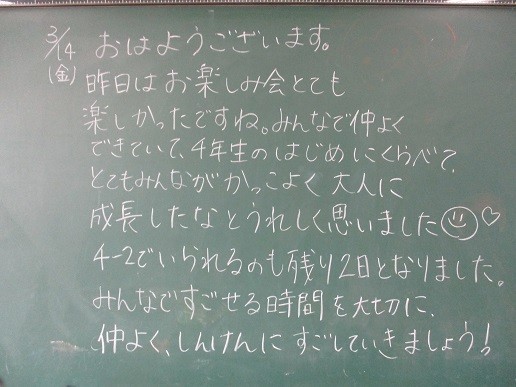 3/14 おはようございます。
(金) 昨日はお楽しみ会とても
楽しかったですね。みんなで仲よく
できていて、4年生のはじめにくらべて、
とてもみんながかっこよく大人に
成長したなとうれしく思いました
4-2でいられるのも残り2日となりました。
みんなですごせる時間を大切に、
仲よく、しんけんにすごしていきましょう!